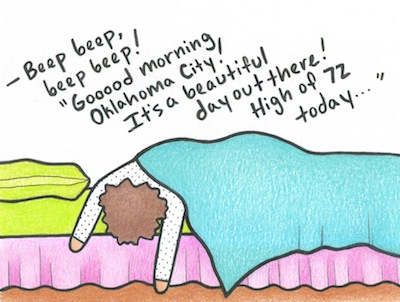 - Beep beep,
beep beep!
"Gooood morning,
Oklahoma City!
It's a beautiful
day out there!
High of 72
today..."